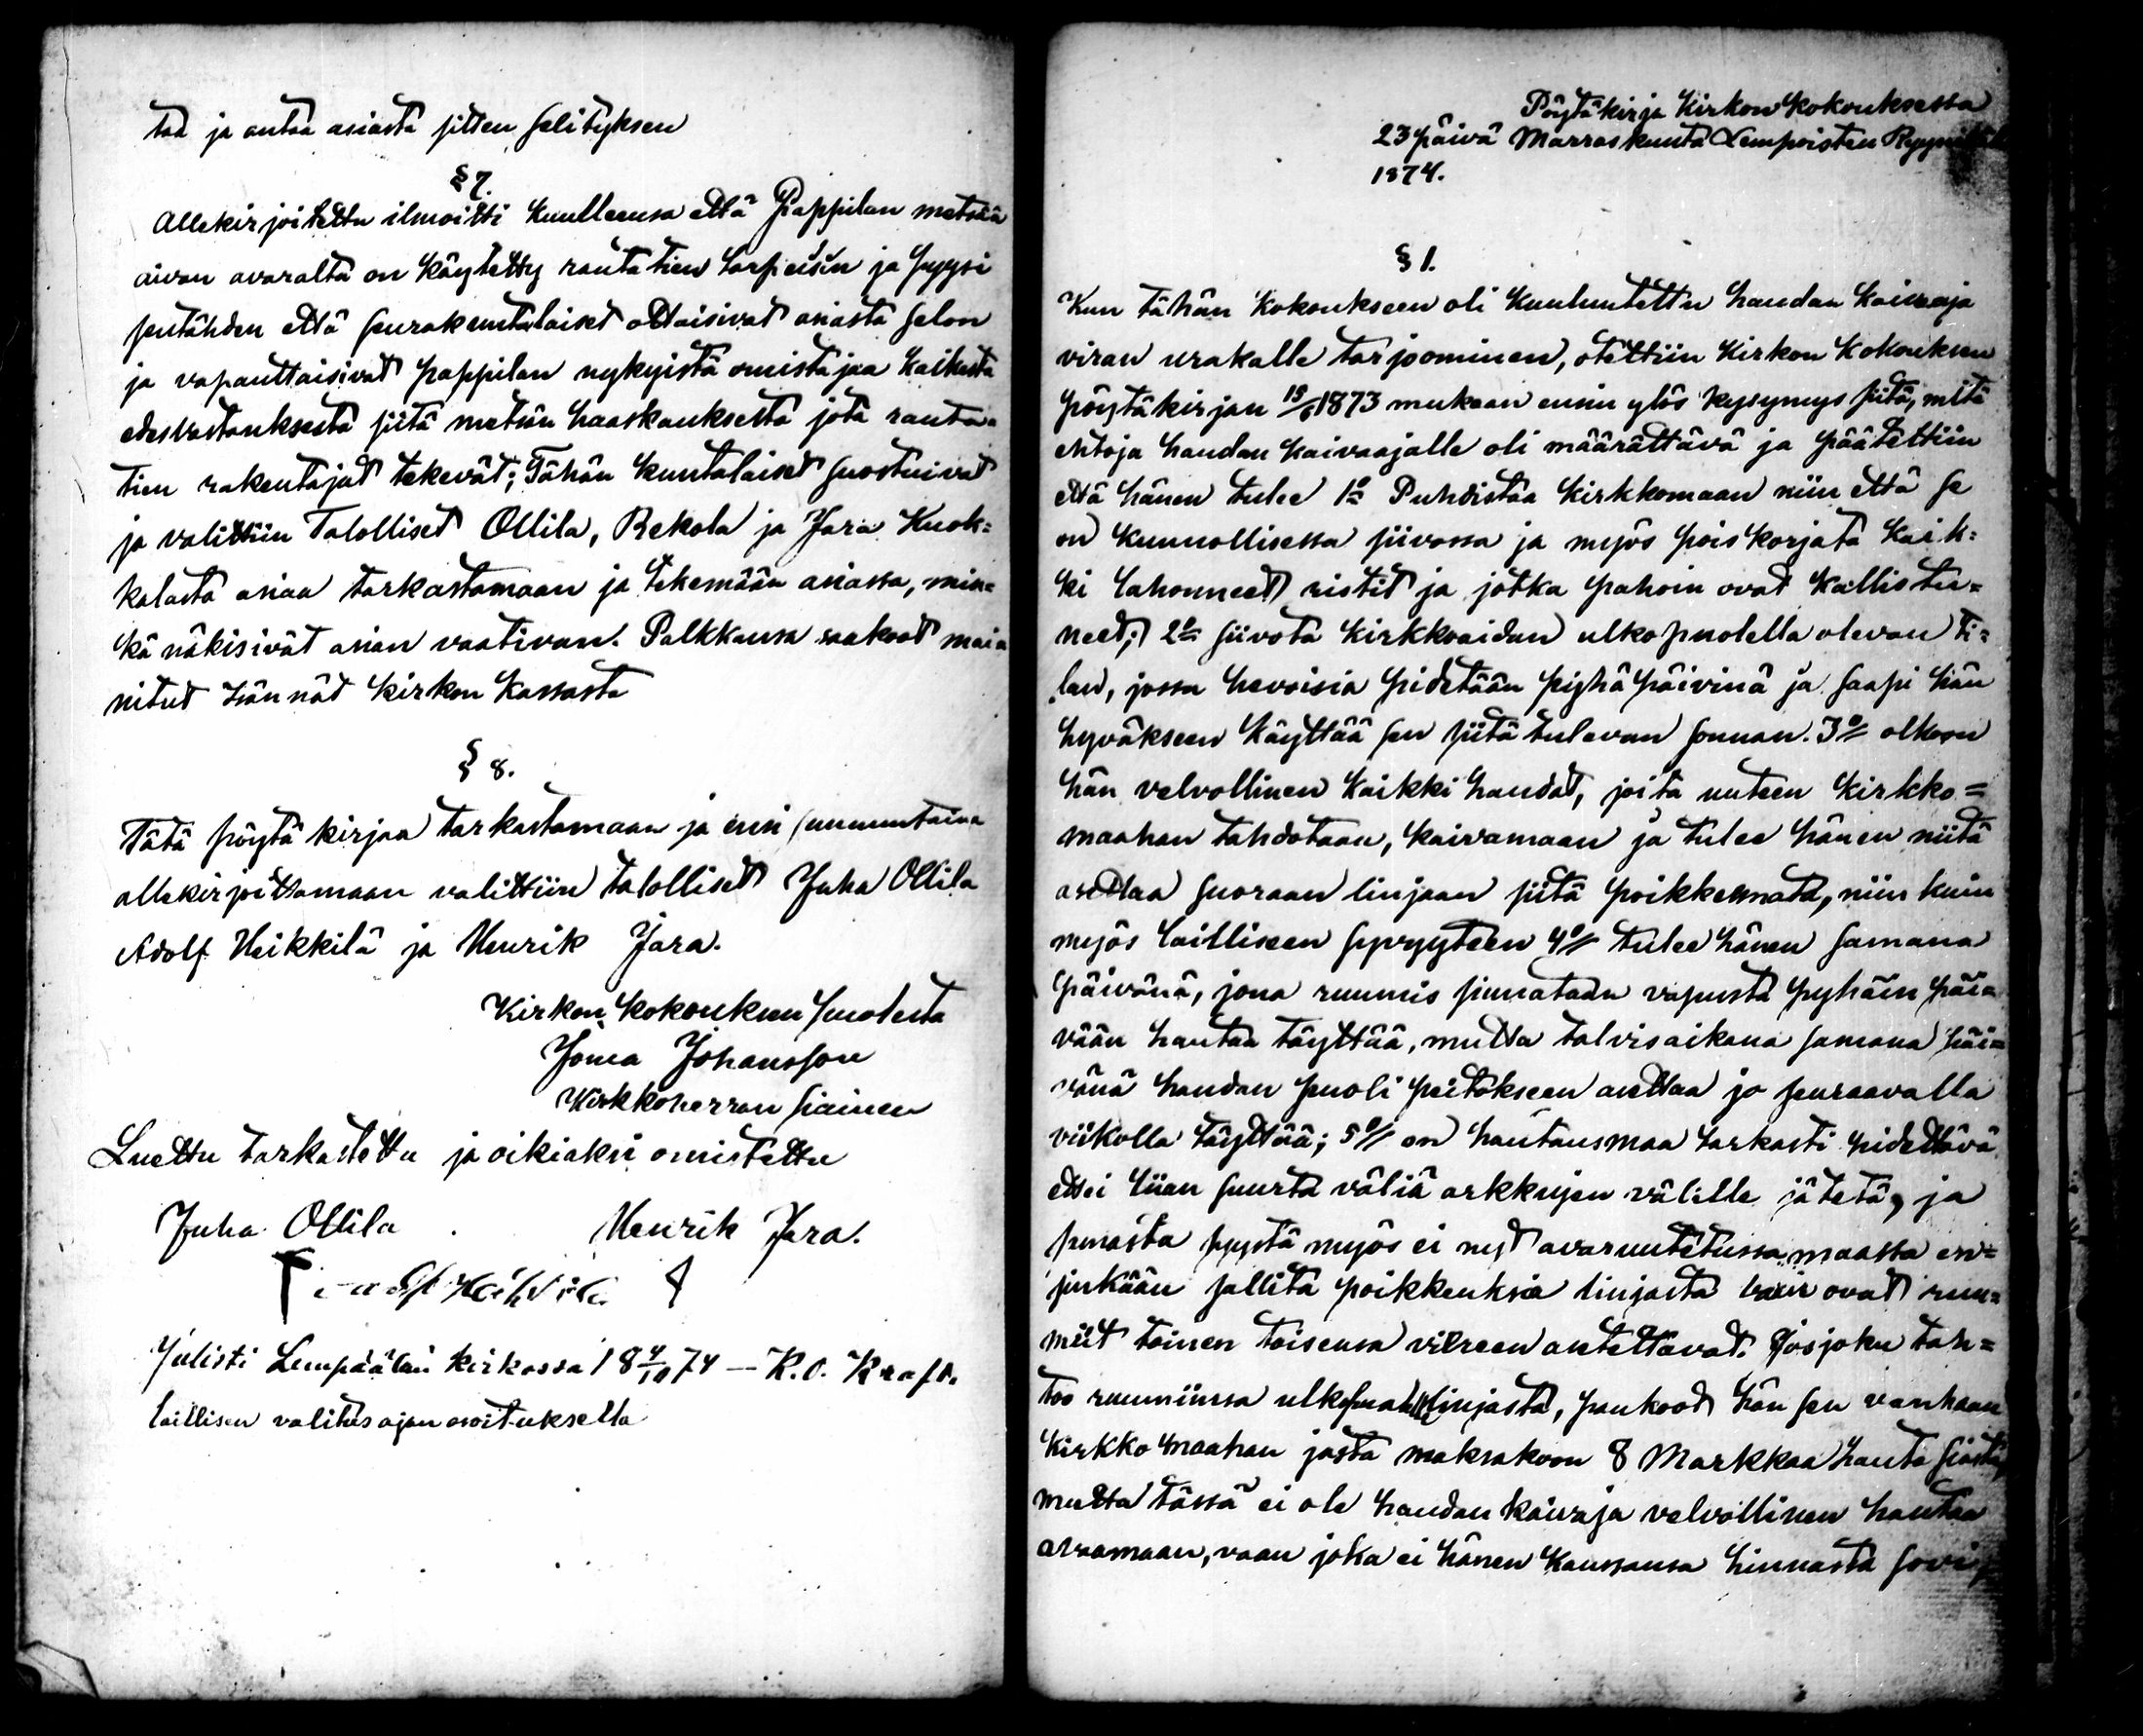 taa ja antaa asiasta sitten selityksen
§ 7.
Allekirjoitettu ilmoitti kuulleensa että Pappilan metsää
aivan avaralta on käytetty rautatien tarpeisiin ja pyysi
sentähden että seurakuntalaiset ottaisivat asiasta selon
ja vapauttaisivat pappilan nykyistä omistajaa kaikesta
edesvastauksesta siitä metsän haaskauksesta jota rauta-
tien rakentajat tekevät; Tähän kuntalaiset suostuivat
ja valittiin Talolliset Ollila, Rekola ja Jara Kuok=
kalasta asiaa tarkastamaan ja tekemään asiassa, min=
kä näkisivät asian vaativan. Palkkansa saakoot mai-
nitut kännät kirkon kassasta
§ 8.
Tätä pöytä kirjaa tarkastamaan ja ensi sunnuntaina
allekirjoittamaan valittiin talolliset Juha Ollila
Adolf Heikkilä ja Henrik Jara.
Kirkon kokouksen puolesta
Joma Johansson
Kirkkoherran siainen
Luettu tarkastettu ja oikiaksi omistettu
Juha Ollila Henrik Jara.
Julisti Lempäälän kirkossa 18 4/10 74 — K. O. Kraft.
laillisen valitus ajan osoituksella
Pöytäkirja Kirkon kokouksessa
23 päivä Marraskuuta Lempoisten
1874.
§ 1.
Kun tähän kokoukseen oli kuulutettu haudan kaivaja
viran urakalle tarjoominen, otettiin Kirkon kokouksen
pöytäkirjan 1873 mukaan ensin ylös kysymys siitä, mitä
ehtoja haudan kaivaajalle oli määrättävä ja päätettiin
että hänen tulee 1o Puhdistaa kirkkomaan niin että se
on kunnollisessa siivossa ja myös pois korjata kaik=
ki lahonneet ristit ja jotka pahoin ovat kallistu=
neet; 2o siivota kirkkoaidan ulkopuolella olevan ti=
lan, jossa hevoisia pidetään pyhä päivinä ja saapi hän
hyväkseen käyttää sen siitä tulevan sonnan. 3o olkoon
hän velvollinen kaikki haudat, joita uuteen kirkko=
maahan tahdotaan, kaivamaan ja tulee hänen niitä
asettaa suoraan linjaan siitä poikkeemata, niin kuin
myös lailliseen syvyyteen 4o tulee hänen samana
päivänä, jona ruumis siunataan vapusta pyhäin päi-
vään hautaa täyttää, mutta talvisaikana samana päi=
vänä haudan puoli peitokseen asettaa jo seuraavalla
viikolla täyttää; 5o on hautausmaa tarkasti pidettävä
ettei liian suurta väliä arkkujen välille jätetä, ja
samasta syystä myös ei nyt avaruutetussa maassa en=
sinkään sallita poikkeuksia linjasta vain ovat ruu=
miit toinen toisensa viereen asetettavat. Jos joku tah=
too ruumiinsa ulkopuolella linjasta, pankoot hän sen vanhaan
kirkko maahan josta maksakoon 8 Markkaa hauta siasta,
mutta tässä ei ole haudan kaivaja velvollinen hautaa
avaamaan, vaan joka ei hänen kanssansa hinnasta sovi